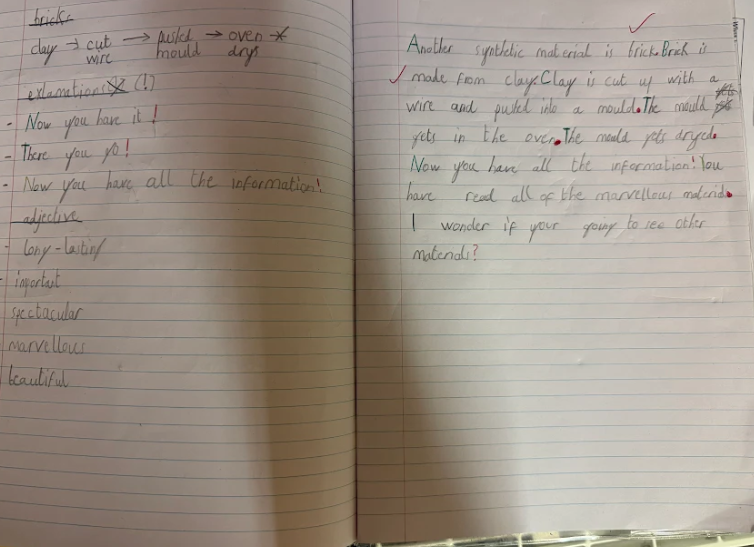 bricks
clay → cut → pushed → oven
wire mould drys
exlamations (!)
- Now you have it!
- There you go!
- Now you have all the information!
adjective
- long-lasting
- important
spectacular
marvellous
beautiful
Another synthetic material is brick. Brick is
made from clay. Clay is cut up with a
wire and pushed into a mould. The mould
gets in the oven. The mould gets dryed.
Now you have all the information! You
have read all of the marvellous materials.
I wonder if your going to see other
materials?